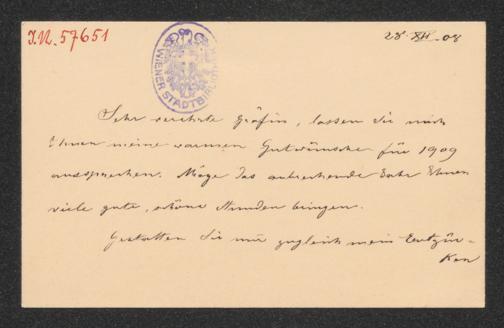 I.N. 57651
28. XII. 08
WIENER STADTBIBLIOTHEK
Sehr verehrte Gräfin, lassen Sie mich
Ihnen meine warmen Gutwünsche für 1909
aussprechen. Möge das anbrechende Jahr Ihnen
viele gute, schöne Stunden bringen.
Gestatten Sie mir zugleich mein Entzü-
ken